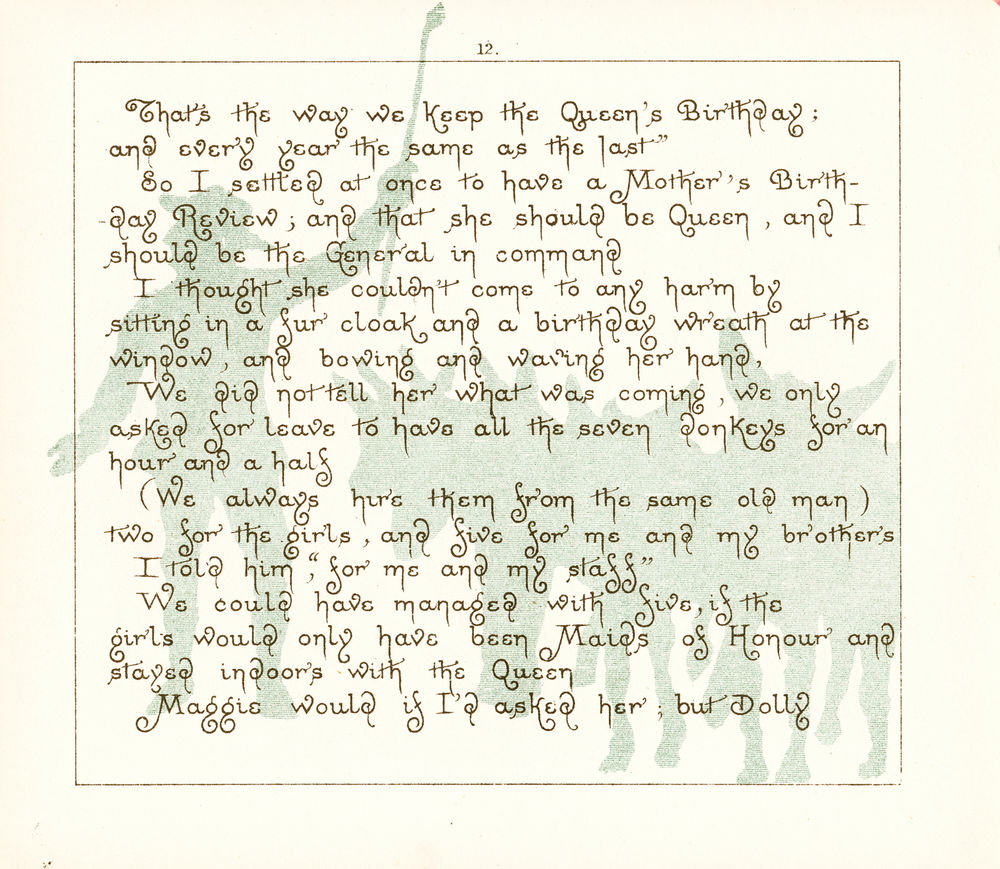 12.
That's the way we keep the Queen's Birthday;
and every year the same as the last"
So I settled at once to have a Mother's Birth-
-day Review; and that she should be Queen, and I
should be the General in command
I thought she couldn't come to any harm by
sitting in a fur cloak and a birthday wreath at the
window, and bowing and waving her hand,
We did not tell her what was coming, we only
asked for leave to have all the seven donkeys for an
hour and a half
(We always hire them from the same old man)
two for the girls, and five for me and my brothers
I told him, "for me and my staff"
We could have managed with five, if the
girls would only have been Maids of Honour and
stayed indoors with the Queen
Maggie would if I'd asked her; but Dolly